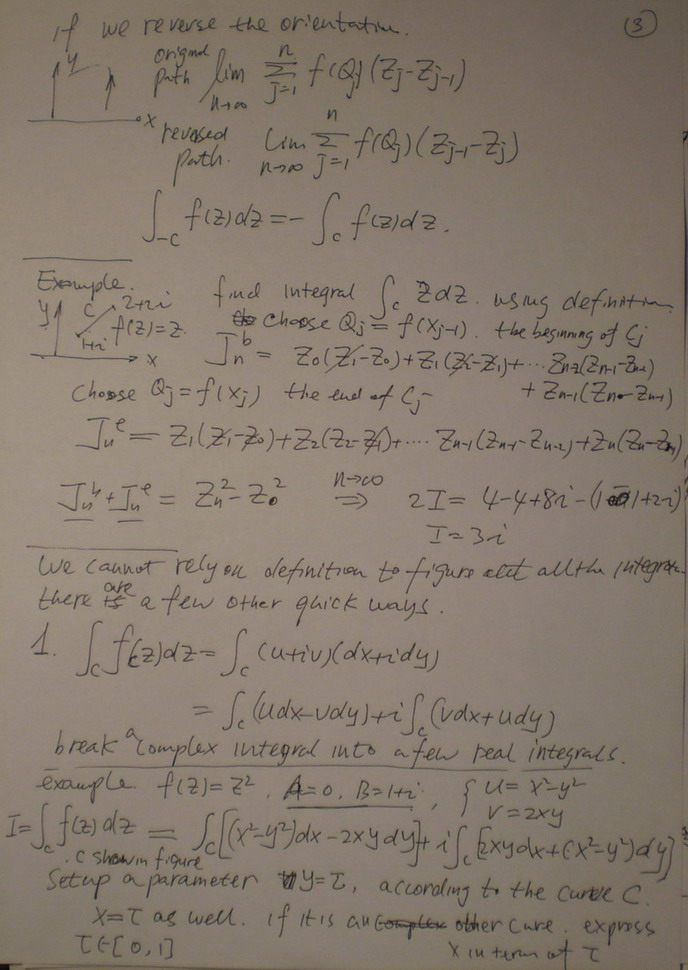 if we reverse the orientation. (3)
y original path lim n→∞ n Σ j=1 f(Qj)(Zj-Zj-1)
x reversed path. lim n→∞ n Σ j=1 f(Qj)(Zj-1-Zj)
∫-c f(z)dz = - ∫c f(z)dz.
Example. find integral ∫c Zdz. using definition.
y C 2+2i f(z)=z. 1+i x choose Qj = f(xj-1). the beginning of Cj
Jn^b = Z0(Z1-Z0)+Z1(Z2-Z1)+... Zn-2(Zn-1-Zn-2)
+ Zn-1(Zn-Zn-1)
Choose Qj = f(xj) the end of Cj
Jn^e = Z1(Z1-Z0)+Z2(Z2-Z1)+.... Zn-1(Zn-1-Zn-2)+Zn(Zn-Zn-1)
Jn^b + Jn^e = Zn^2-Z0^2 n→∞ ⇒ 2I = 4-4+8i-(1-1+2i)
I=3i
We cannot rely on definition to figure out all the integrals.
there are a few other quick ways.
1. ∫c f(z)dz = ∫c (u+iv)(dx+idy)
= ∫c (udx-vdy)+i∫c (vdx+udy)
break a complex integral into a few real integrals.
example. f(z)=z^2. A=0. B=1+i, { u=x^2-y^2
v=2xy
I=∫c f(z)dz = ∫c[(x^2-y^2)dx-2xydy]+i∫c[2xydx+(x^2-y^2)dy]
. C shown in figure
Setup a parameter y=τ, according to the curve C.
x=τ as well. if it is an other cure. express
τ∈[0,1] x in term of τ